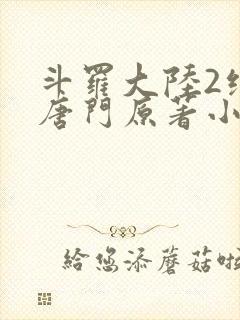 斗羅大陸2
唐門原著小
給您添蘑菇啦